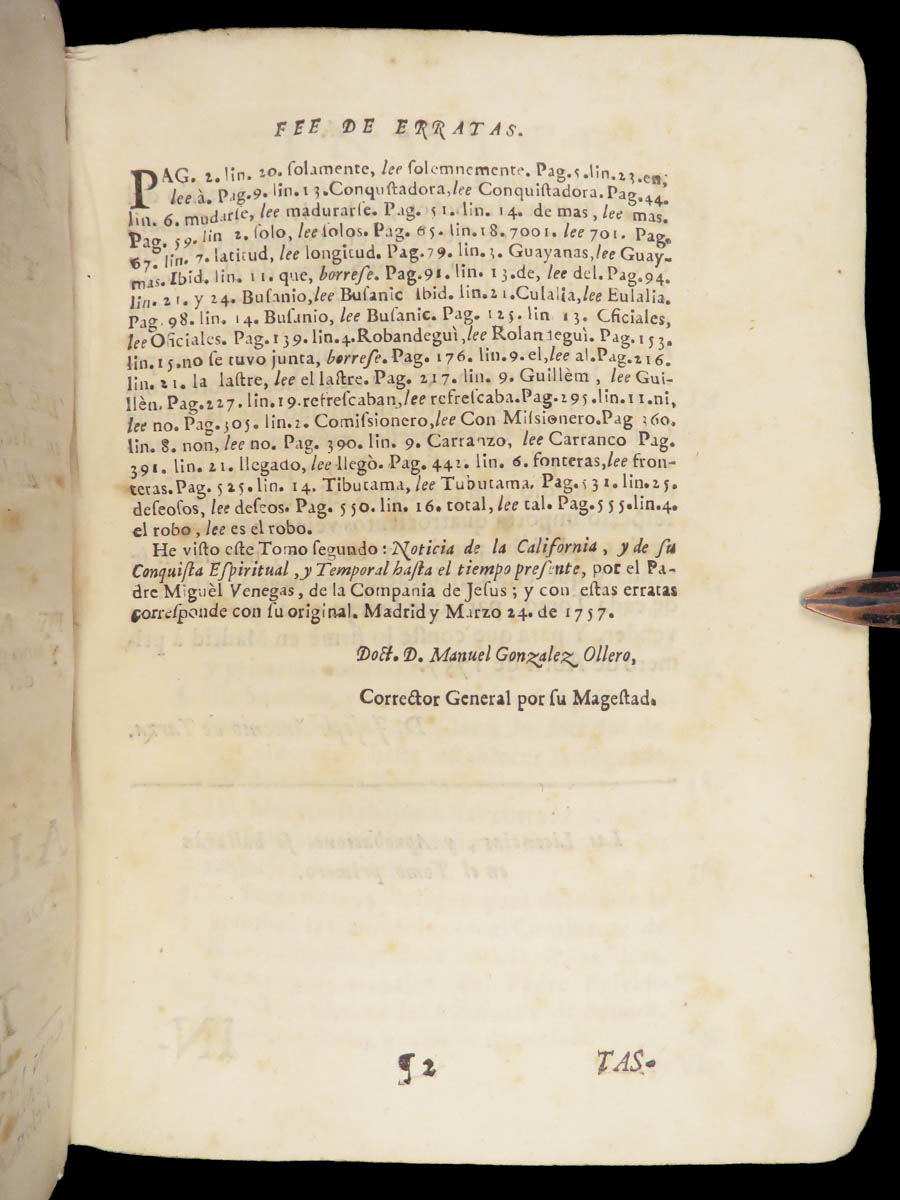 FEE DE ERRATAS.
PAG. 2. lin. 20. ſolamente, lee ſolemnemente. Pag. 5. lin. 23. en,
lee à. Pag. 9. lin. 13. Conquſtadora, lee Conquiſtadora. Pag. 44.
lin. 6. mudarſe, lee madurarſe. Pag. 51. lin. 14. de mas, lee mas.
Pag. 59. lin 2. ſolo, lee ſolos. Pag. 65. lin. 18. 7001. lee 701. Pag.
67. lin. 7. latitud, lee longitud. Pag. 79. lin. 3. Guayanas, lee Guay-
mas. Ibid. lin. 11. que, borreſe. Pag. 91. lin. 13. de, lee del. Pag. 94.
lin. 21. y 24. Buſanio, lee Buſanic Ibid. lin. 21. Culalia, lee Eulalia.
Pag. 98. lin. 14. Buſanio, lee Buſanic. Pag. 125. lin 13. Cficiales,
lee Oficiales. Pag. 139. lin. 4. Robandeguì, lee Rolandegui. Pag. 153.
lin. 15. no ſe tuvo junta, borreſe. Pag. 176. lin. 9. el, lee al. Pag. 216.
lin. 21. la laſtre, lee el laſtre. Pag. 217. lin. 9. Guillèm, lee Gui-
llèn. Pag. 227. lin. 19. refreſcaban, lee refreſcaba. Pag. 295. lin. 11. ni,
lee no. Pag. 305. lin. 2. Comiſsionero, lee Con Miſsionero. Pag 360.
lin. 8. non, lee no. Pag. 390. lin. 9. Carranzo, lee Carranco Pag.
391. lin. 21. llegado, lee llegò. Pag. 442. lin. 6. fonteras, lee fron-
teras. Pag. 525. lin. 14. Tibutama, lee Tubutama. Pag. 531. lin. 25.
deſeoſos, lee deſeos. Pag. 550. lin. 16. total, lee tal. Pag. 555. lin. 4.
el robo, lee es el robo.
He viſto eſte Tomo ſegundo: Noticia de la California, y de ſu
Conquiſta Eſpiritual, y Temporal haſta el tiempo preſente, por el Pa-
dre Miguèl Venegas, de la Compania de Jeſus; y con eſtas erratas
correſponde con ſu original. Madrid y Marzo 24. de 1757.
Doct. D. Manuel Gonzalez Ollero,
Corrector General por ſu Mageſtad.
¶ 2 TAS-